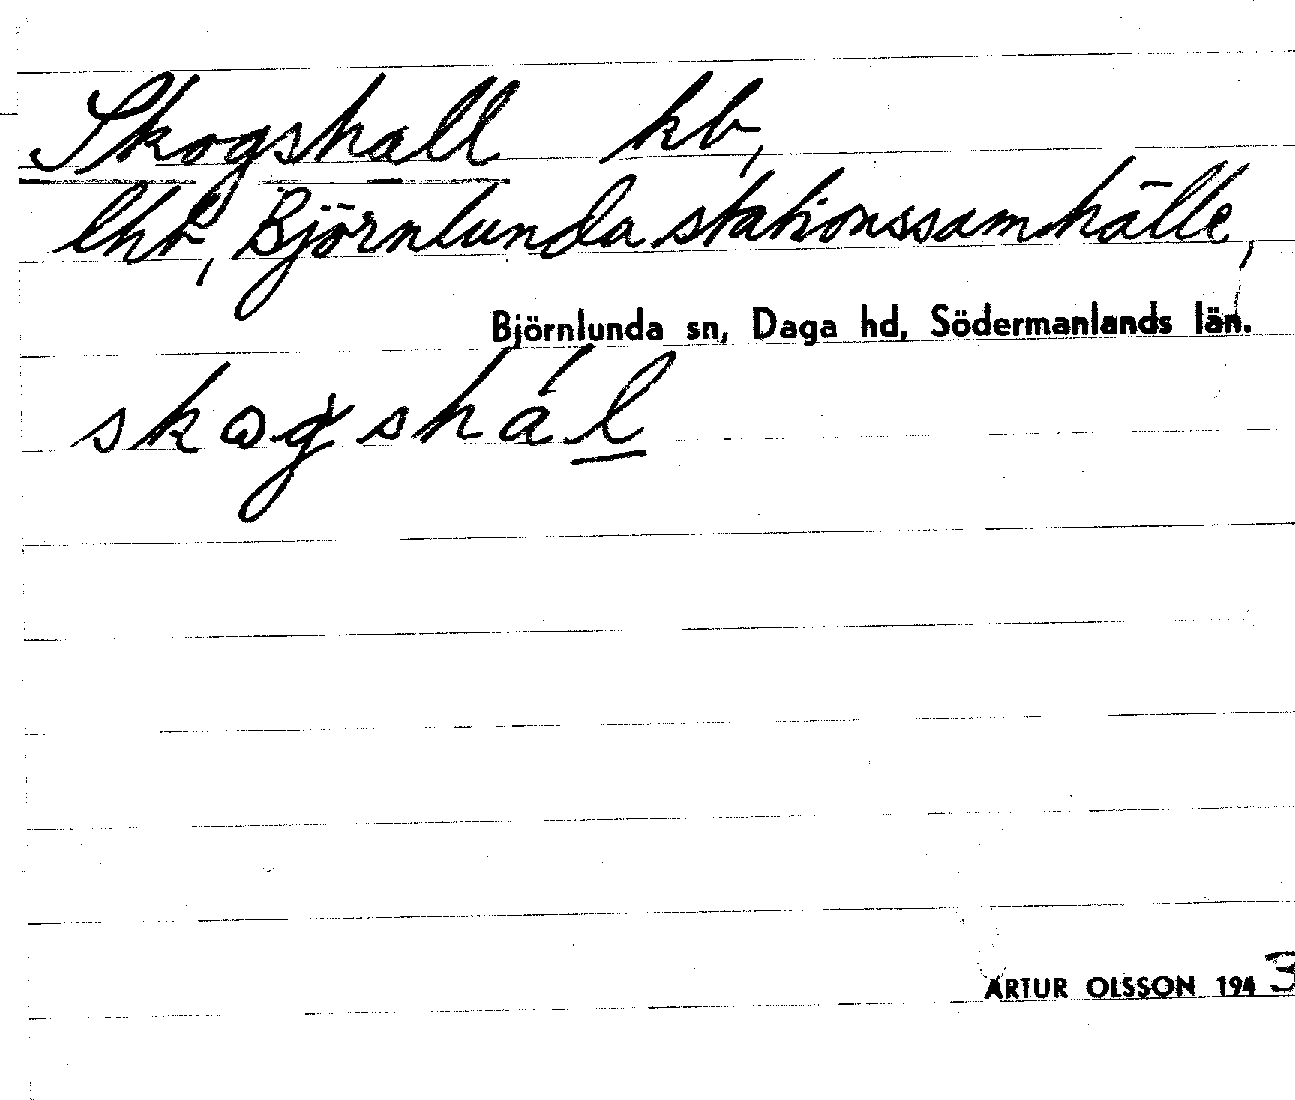 Skogshall hb,
lht, Björnlunda stationssamhälle,
Björnlunda sn, Daga hd, Södermanlands län.
skogshál
ARTUR OLSSON 1943